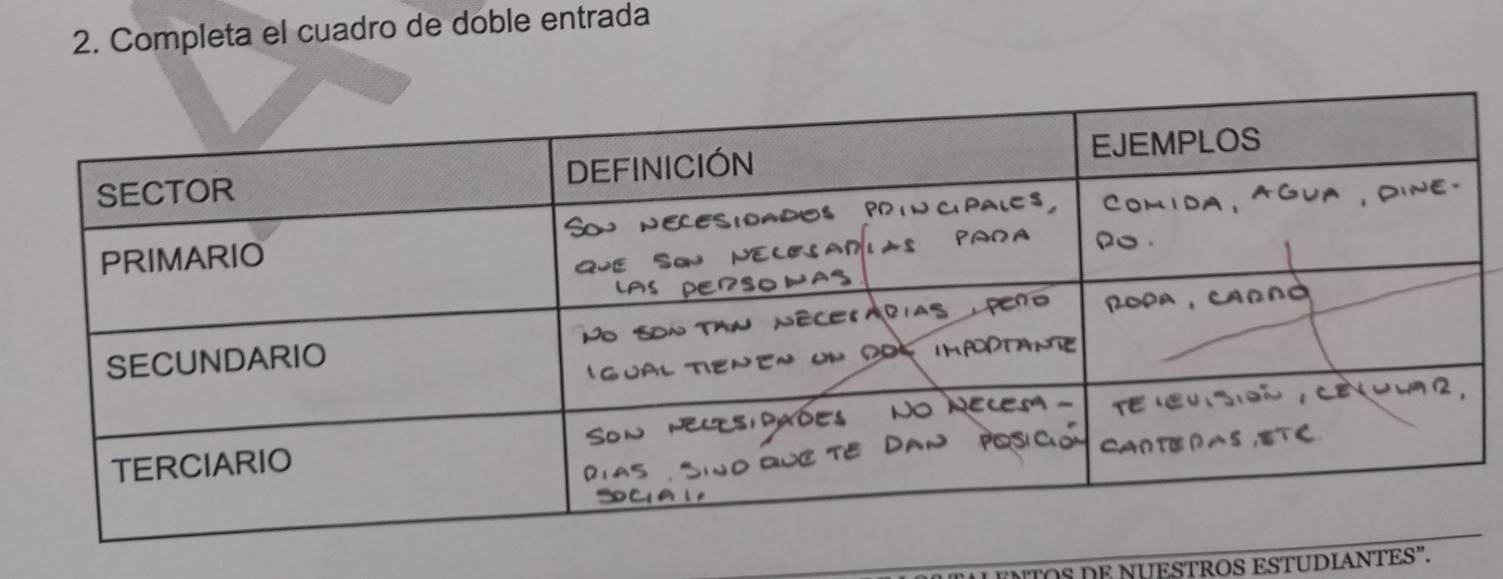 2. Completa el cuadro de doble entrada
SECTOR
DEFINICIÓN
EJEMPLOS
PRIMARIO
SON NECESIDADES PRINCIPALES,
QUE SON NECESARIAS PARA
LAS PERSONAS
COMIDA, AGUA, DINE-
RO.
SECUNDARIO
NO SON TAN NECESARIAS, PERO
IGUAL TIENEN UN ROL IMPORTANTE
ROPA, CARRO
TERCIARIO
SON NECESIDADES NO NECESA-
RIAS, SINO QUE TE DAN POSICIÓN
SOCIAL.
TELEVISIÓN, CELULAR,
CARTERAS, ETC.
DE NUESTROS ESTUDIANTES”.